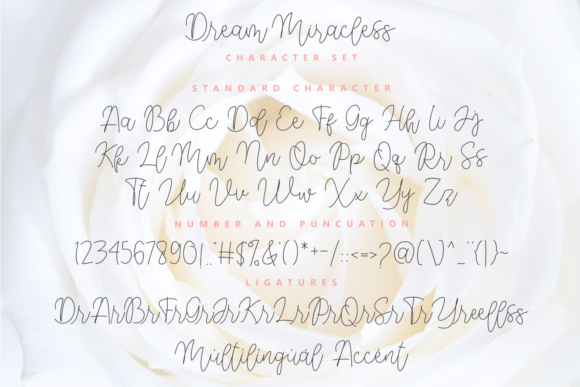 Dream Miracless
CHARACTER SET
STANDARD CHARACTER
Aa Bb Cc Dd Ee Ff Gg Hh Ii Jj
Kk Ll Mm Nn Oo Pp Qq Rr Ss
Tt Uu Vv Ww Xx Yy Zz
NUMBER AND PUNCUATION
1234567890!,.."#$%&'()*+-/:;<=>?@(\)^_¨{|}~
LIGATURES
DrArBrFrGrJrKrLrPrQrSrTrYreellss
Multilinguál Accént